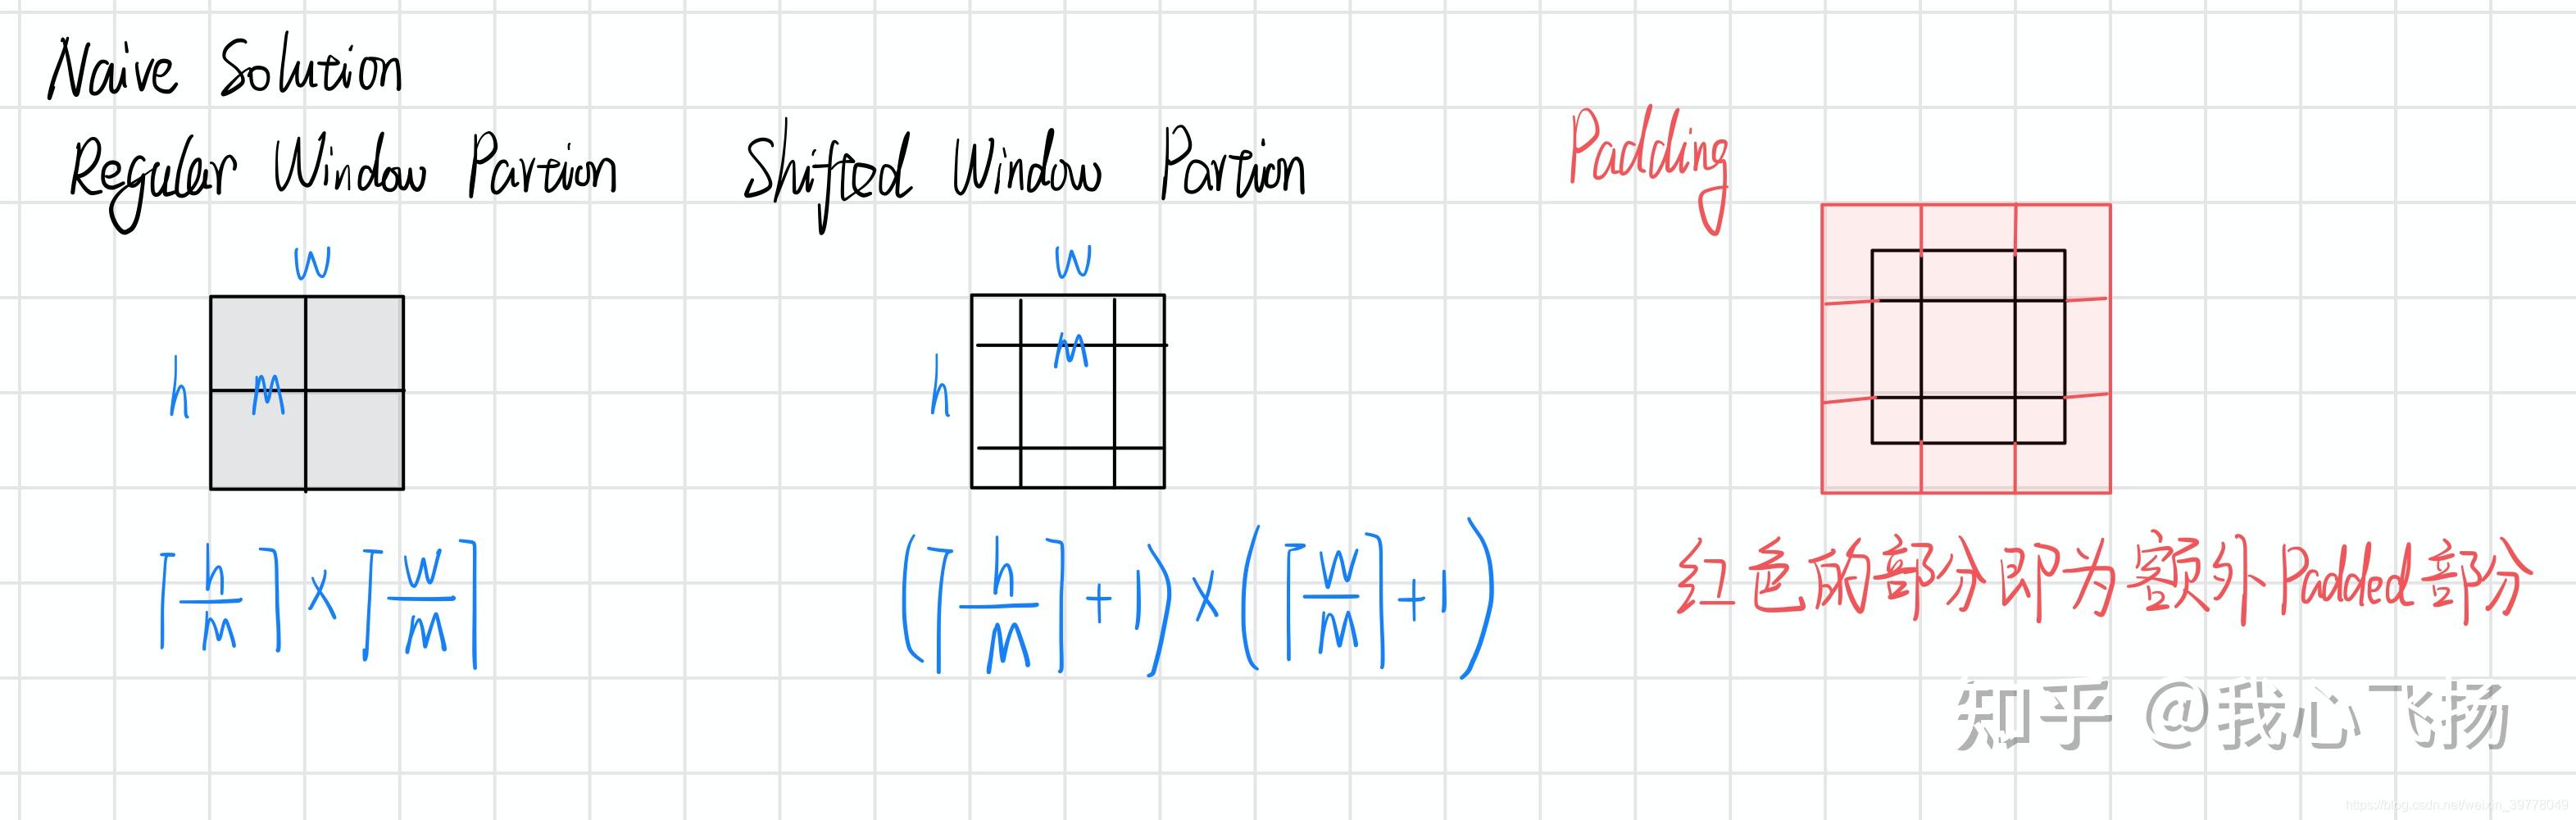 Naive Solution
Regular Window Partion
Shifted Window Partion
Padding
w
h
M
w
h
M
⌈h/M⌉ × ⌈w/M⌉
(⌈h/M⌉ + 1) × (⌈w/M⌉ + 1)
红色的部分即为额外Padded部分
知乎 @我心飞扬
https://blog.csdn.net/weixin_39778049